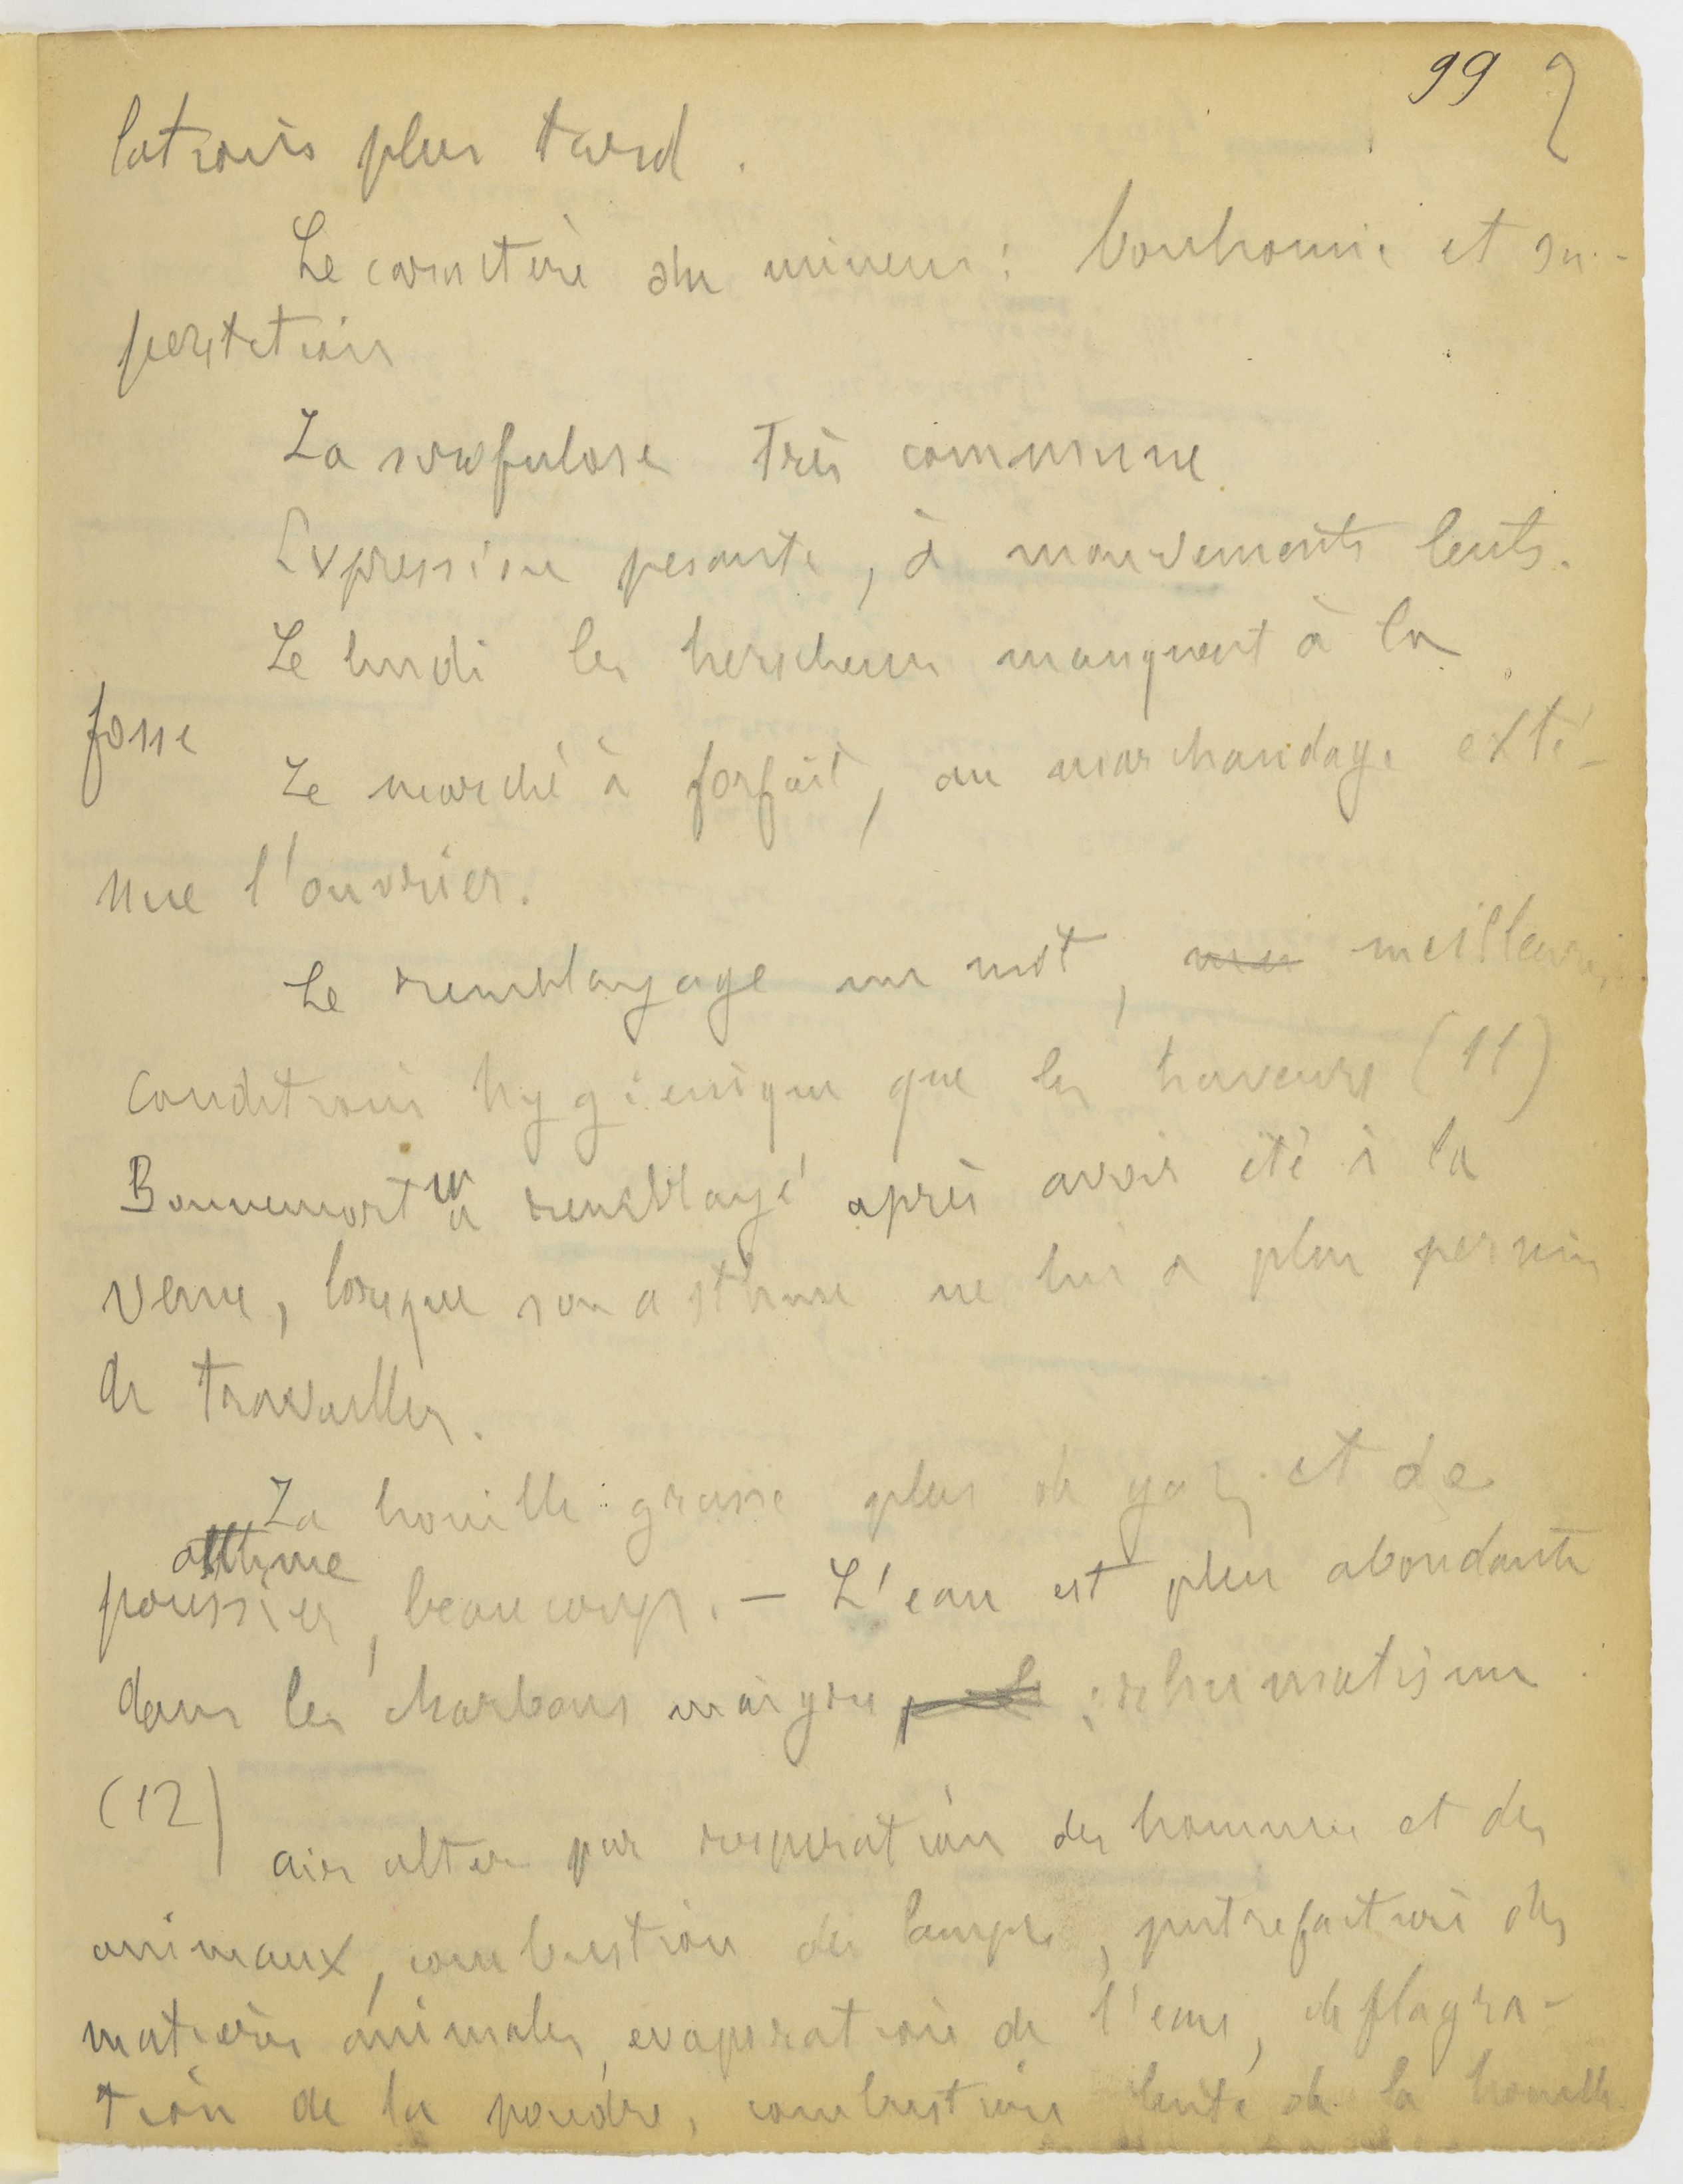 99 2
lations plus tard.
Le caractère du mineur : bonhomie et su-
perstition
La scrofulose très commune
Expression pesante, à mouvements lents.
Le lundi les herscheurs manquent à la
fosse
Le marché à forfait, au marchandage exté-
nue l'ouvrier.
Le remblayage un mot, meilleures
conditions hygieniques que les haveurs (11)
Bonnemort a remblayé après avoir été à la
veine, lorsque son asthme ne lui a plus permis
de travailler.
La houille grasse plus de gaz et de
asthme
poussier, beaucoup. — L'eau est plus abondante
dans les charbons maigres : rhumatisme
(12)
air alteré par respiration des hommes et des
animaux, combustion des lampes, putrefaction des
matières animales, evaporation de l'eau, deflagra-
tion de la poudre, combustion lente de la houille